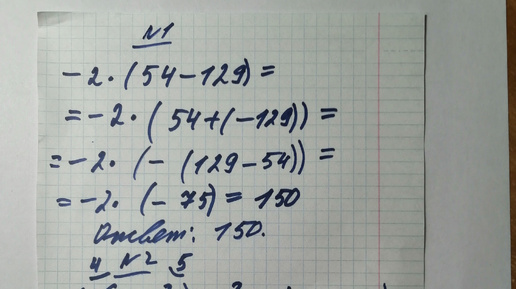 №1
-2·(54-129)=
=-2·(54+(-129))=
=-2·(-(129-54))=
=-2·(-75)=150
Ответ: 150.
4 №2 5